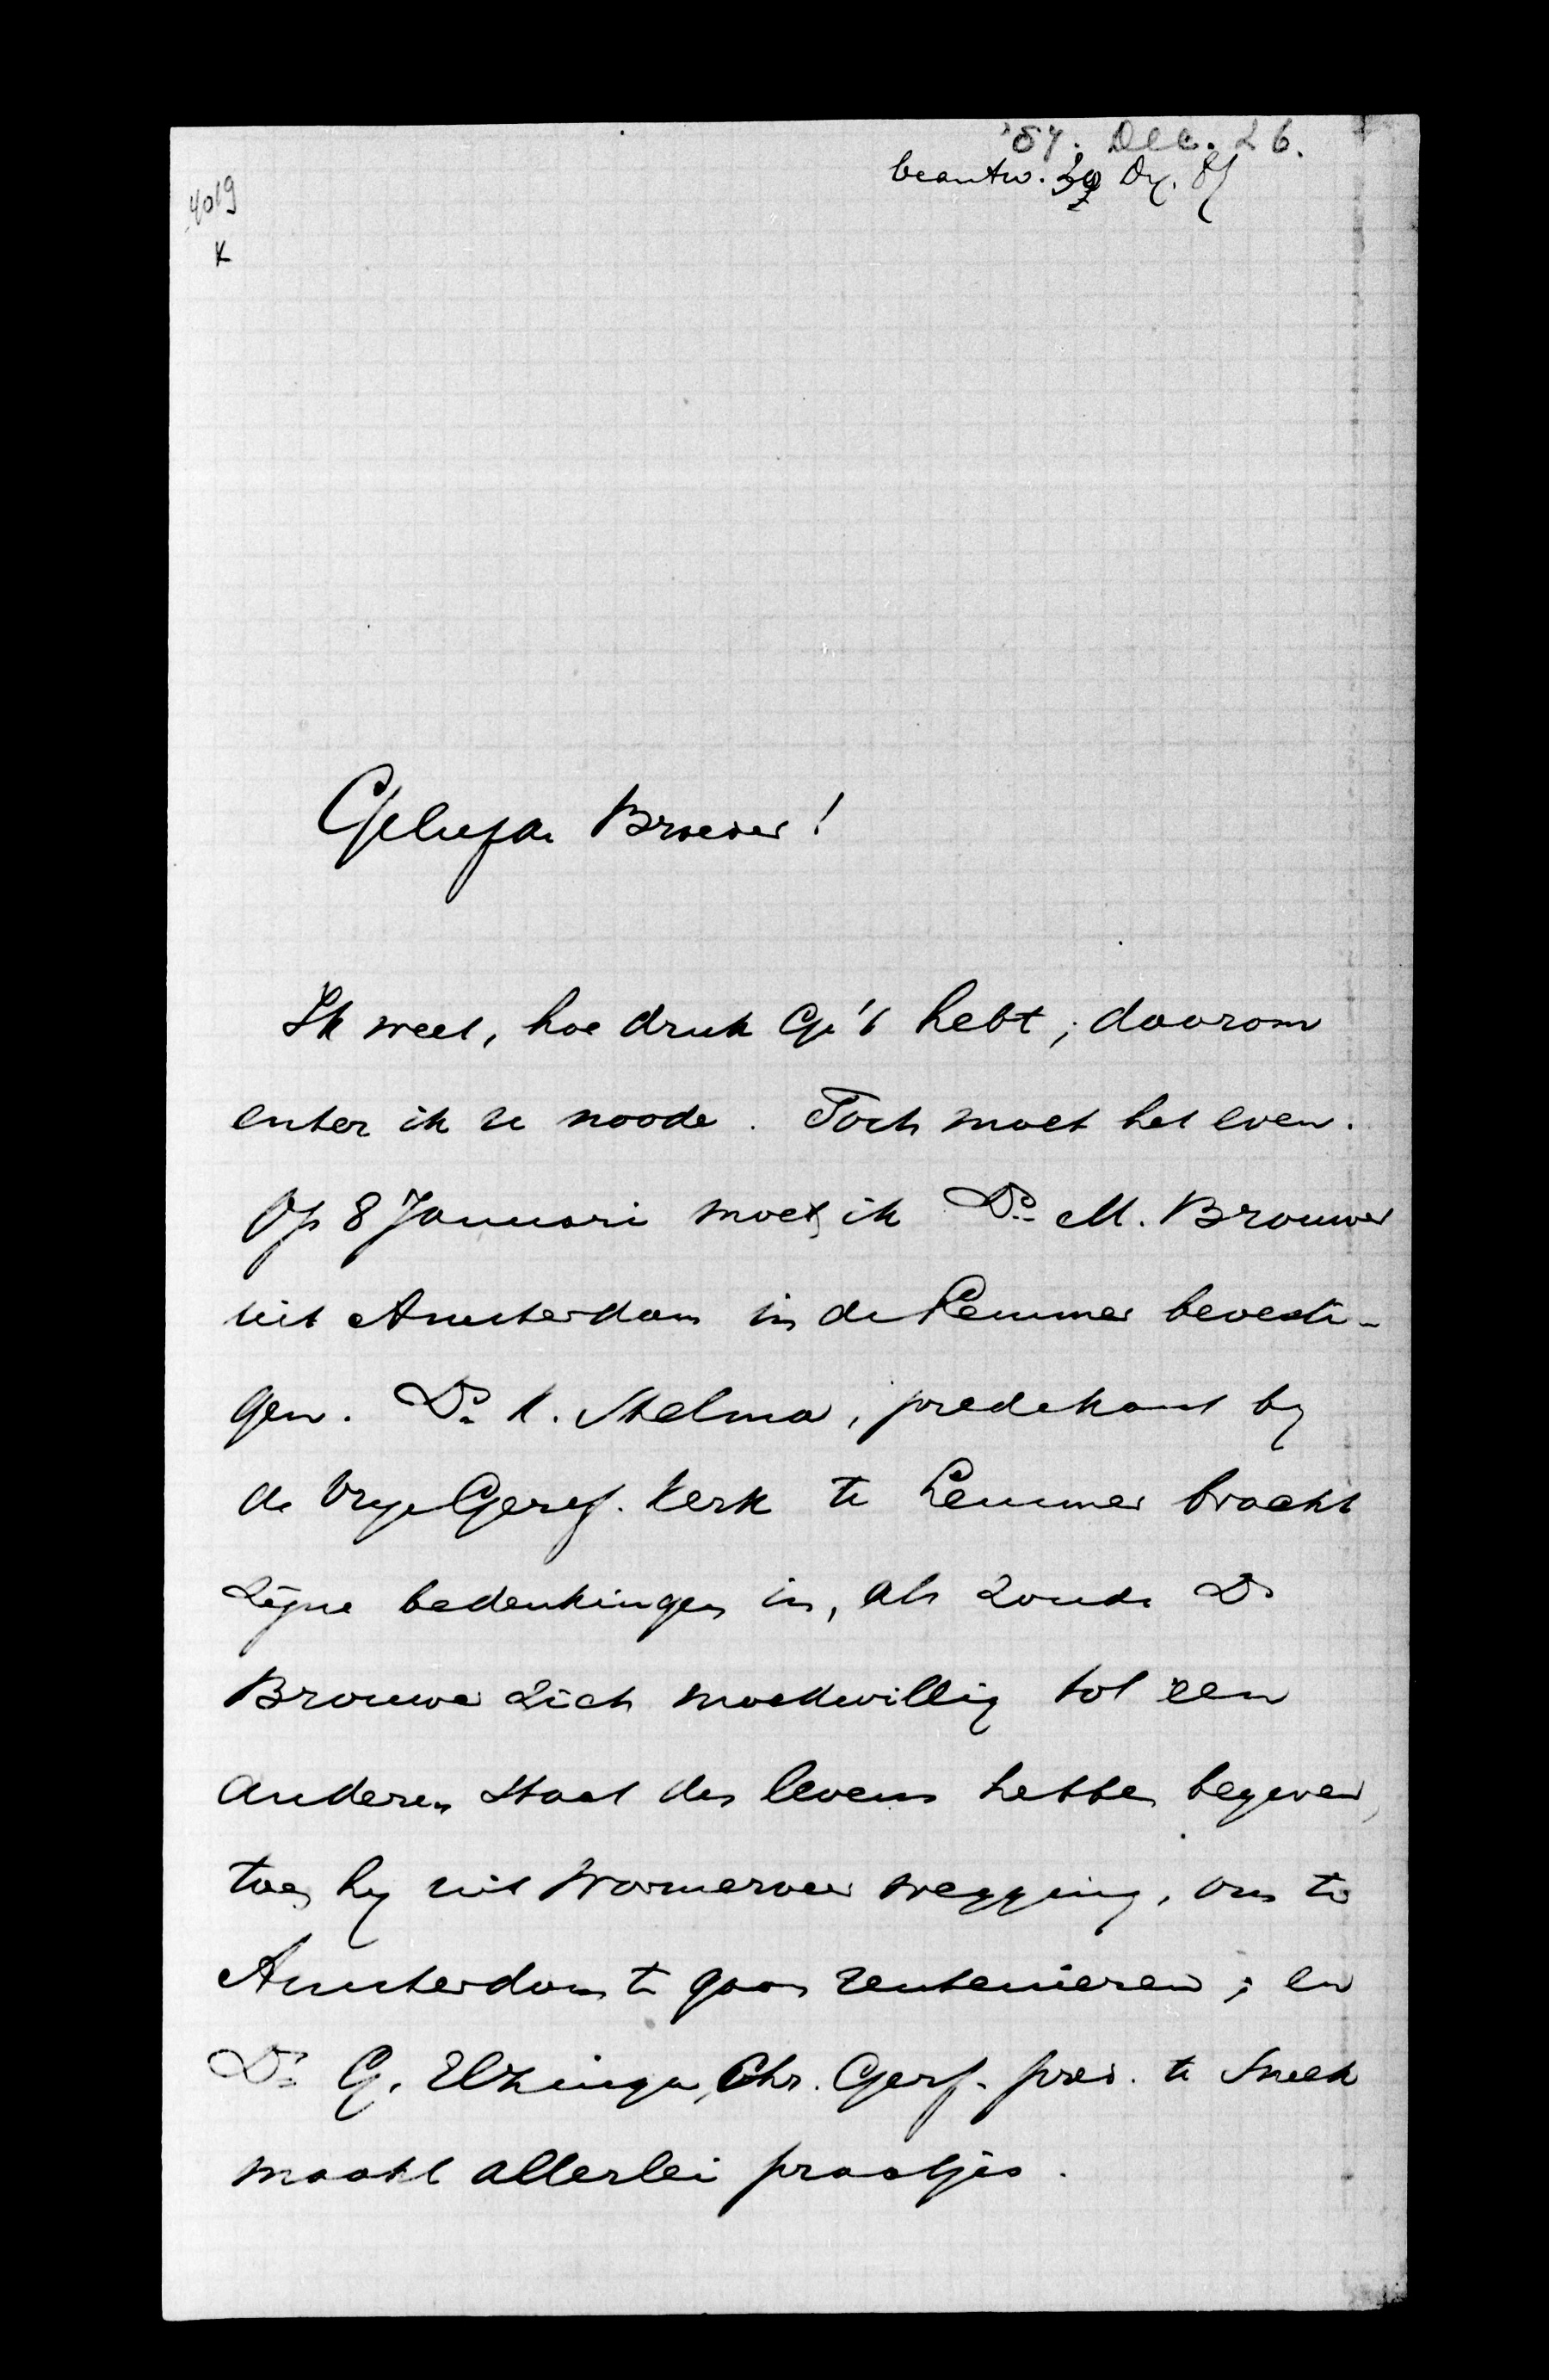 '87. Dec. 26.
beantw. Dec. 87
4019
K
Geliefde Broeder!
Ik weet, hoe druk Ge 't hebt; daarom
enter ik u noode. Toch moet het even.
Op 8 Januari moet ik Ds. M. Brouwer
uit Amsterdam in de Lemmer bevesti-
gen. Ds. K. Stelma, predikant by
de Vrye Geref. Kerk te Lemmer bracht
zyne bedenkingen in, als zoude Ds
Brouwer zich moedwillig tot een
anderen staat des levens hebben begeven,
toen hy uit Wormerveer wegging, om te
Amsterdam te gaan rentenieren; en
Ds. G. Elzinga, Chr. Geref. pred. te Sneek
maakt allerlei praatjes.